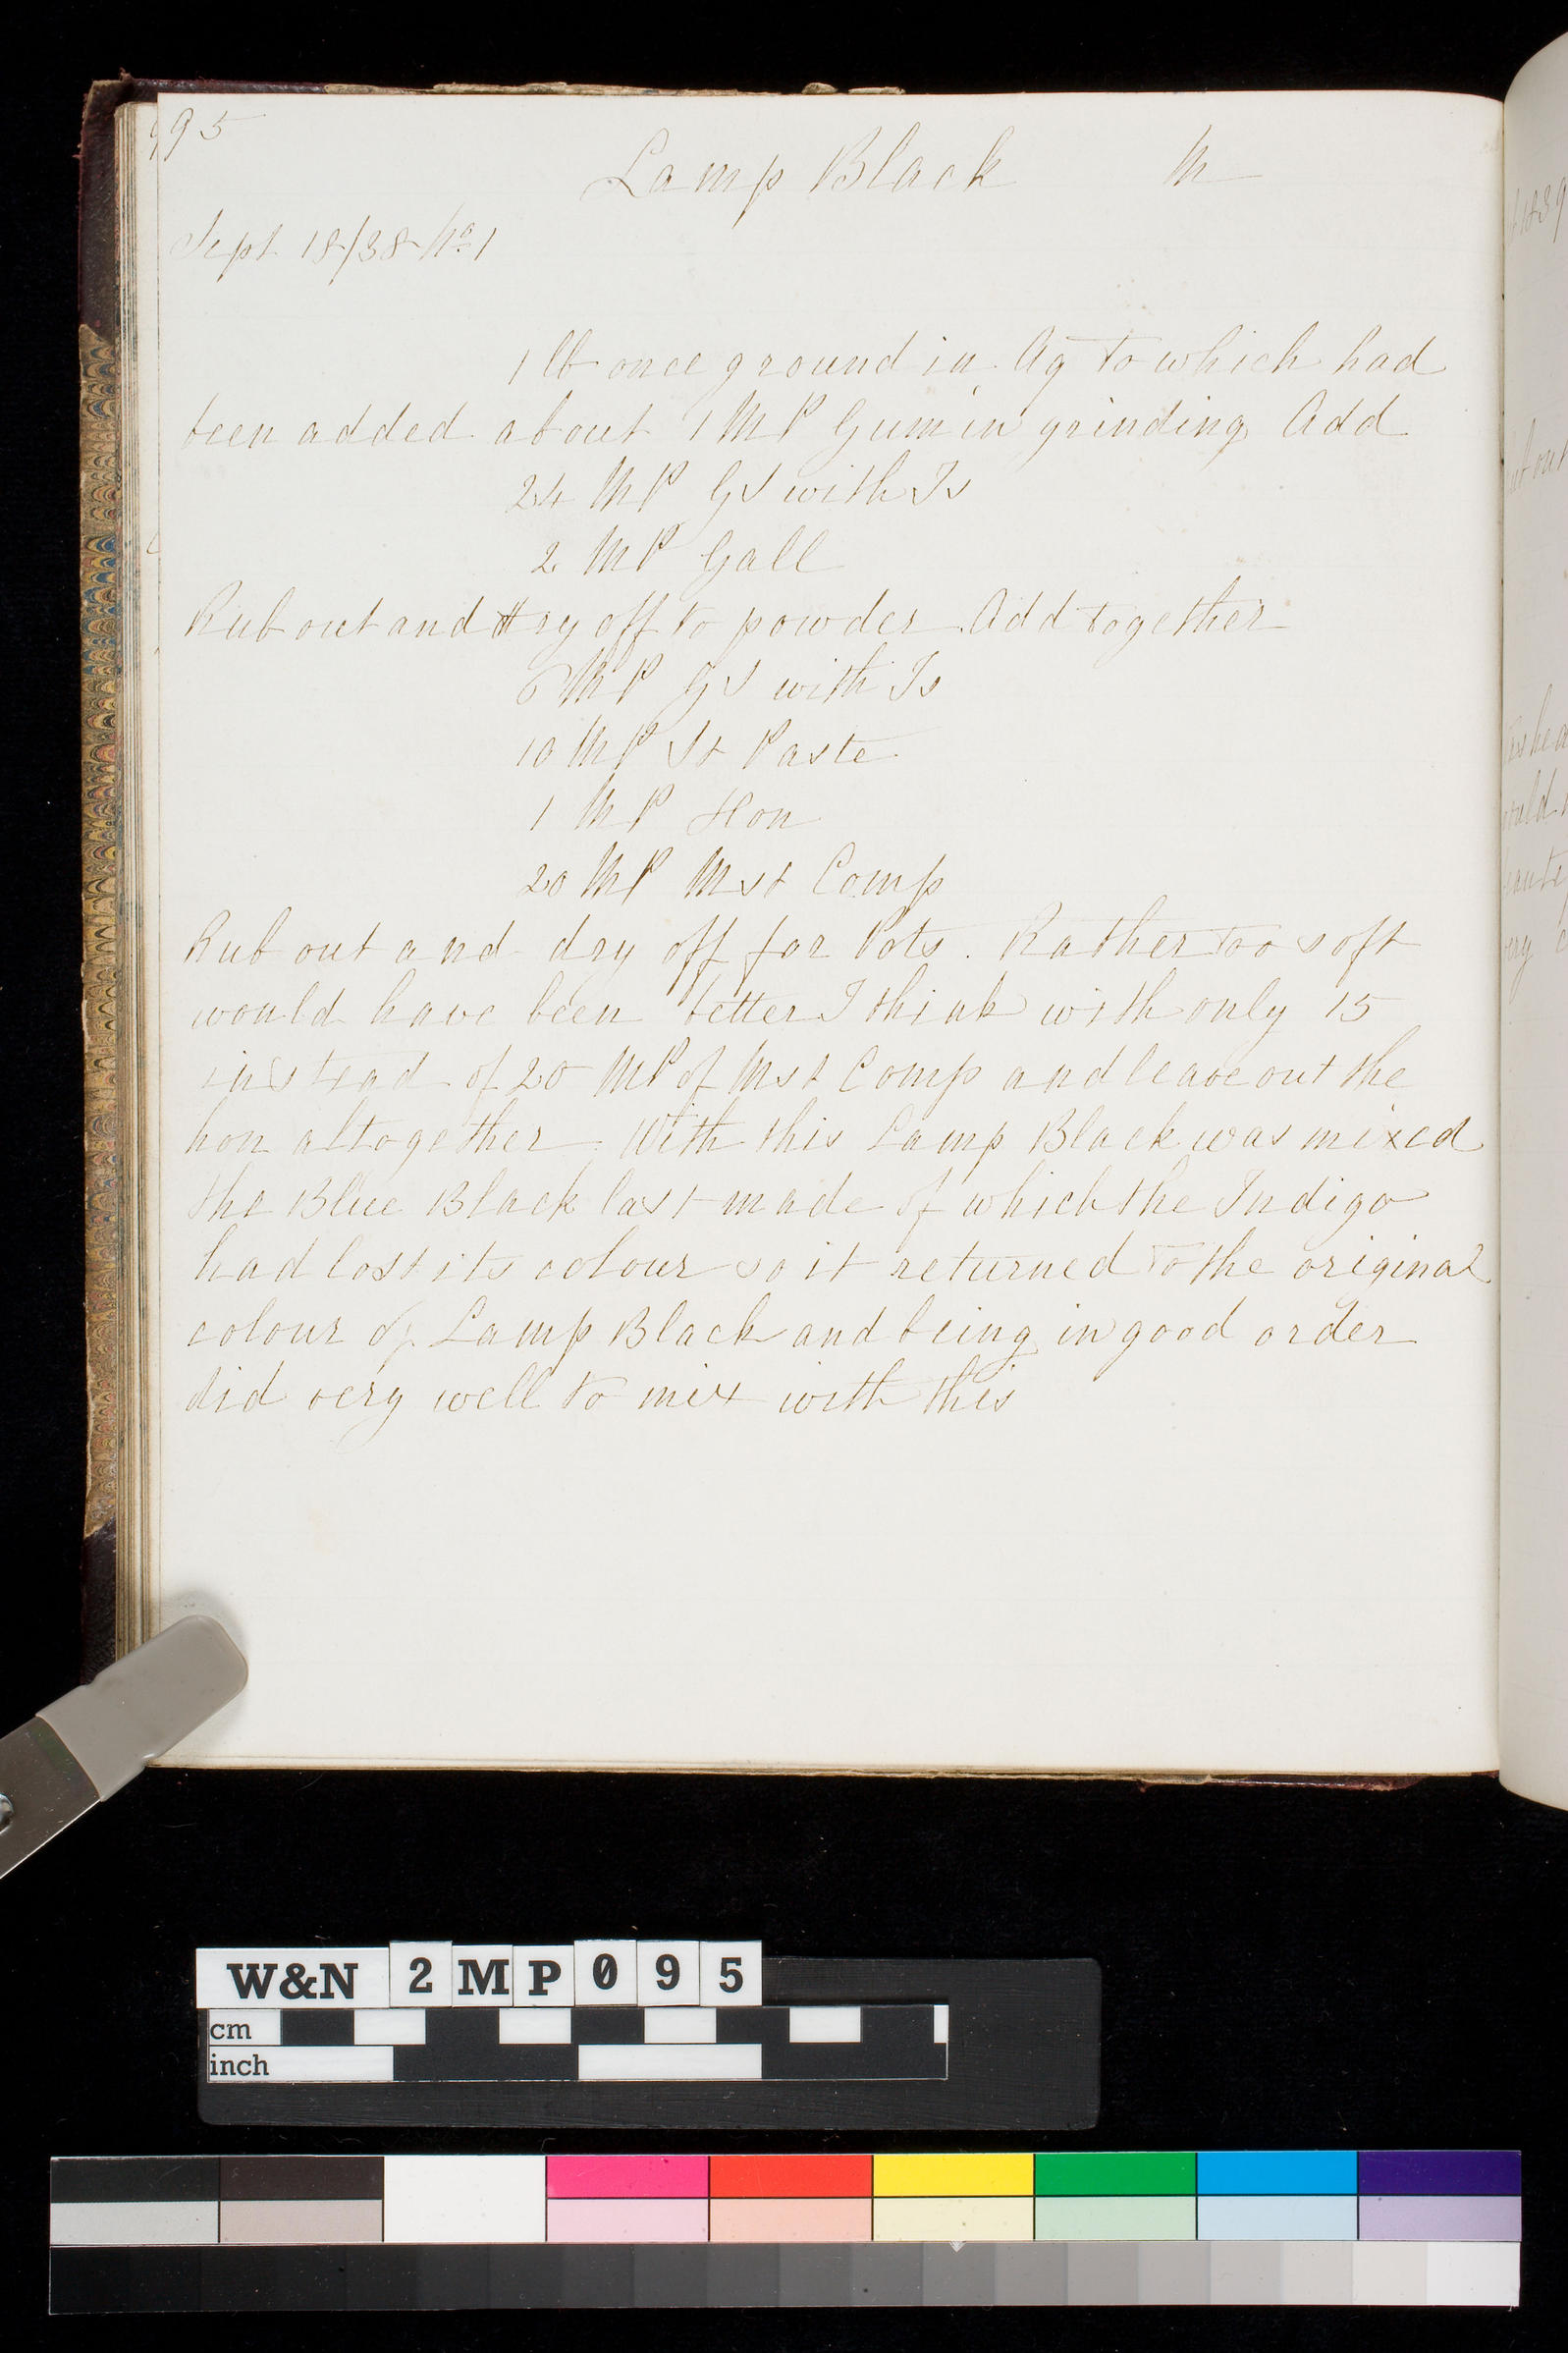 95
Lamp Black M
Sept 18/38 No. 1
1 lb once ground in Aq to which had
been added about 1 MP Gum in grinding Add
24 MP GS with Is
2 MP Gall
Rub out and dry off to powder. Add together
6 MP GS with Is
10 MP St Paste
1 MP Hon
20 MP Mst Comp
Rub out and dry off for Pots. Rather too soft
would have been better I think with only 15
instead of 20 MP of Mst Comp and leave out the
hon altogether. With this Lamp Black was mixed
the Blue Black last made of which the Indigo
had lost its colour so it returned to the original
colour of Lamp Black and being in good order
did very well to mix with this
1839
W&N 2MP095
cm
inch